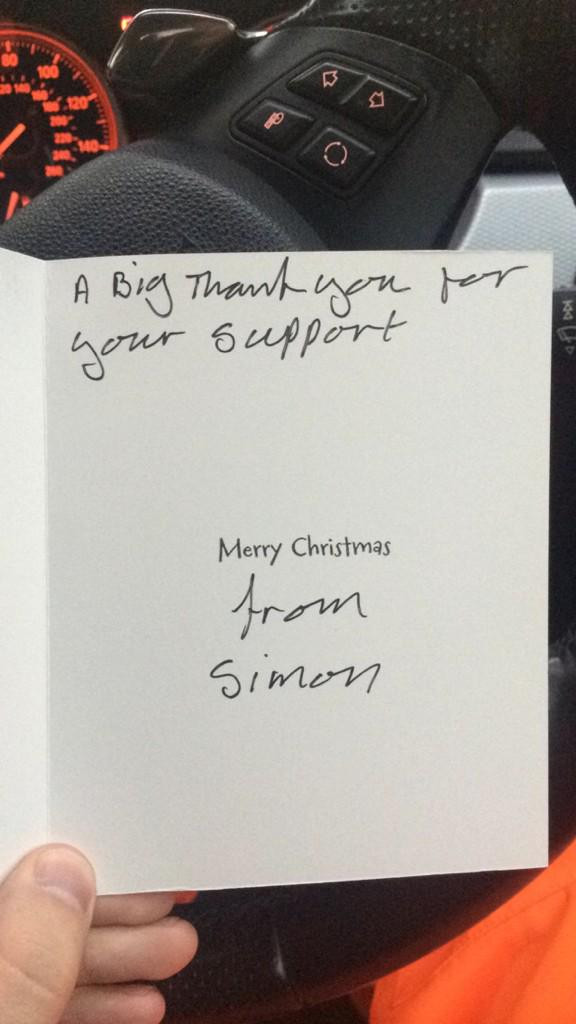 80
100
120
120
140
140
160
180
200
220
240
260
A Big Thank you for
your support
Merry Christmas
from
Simon